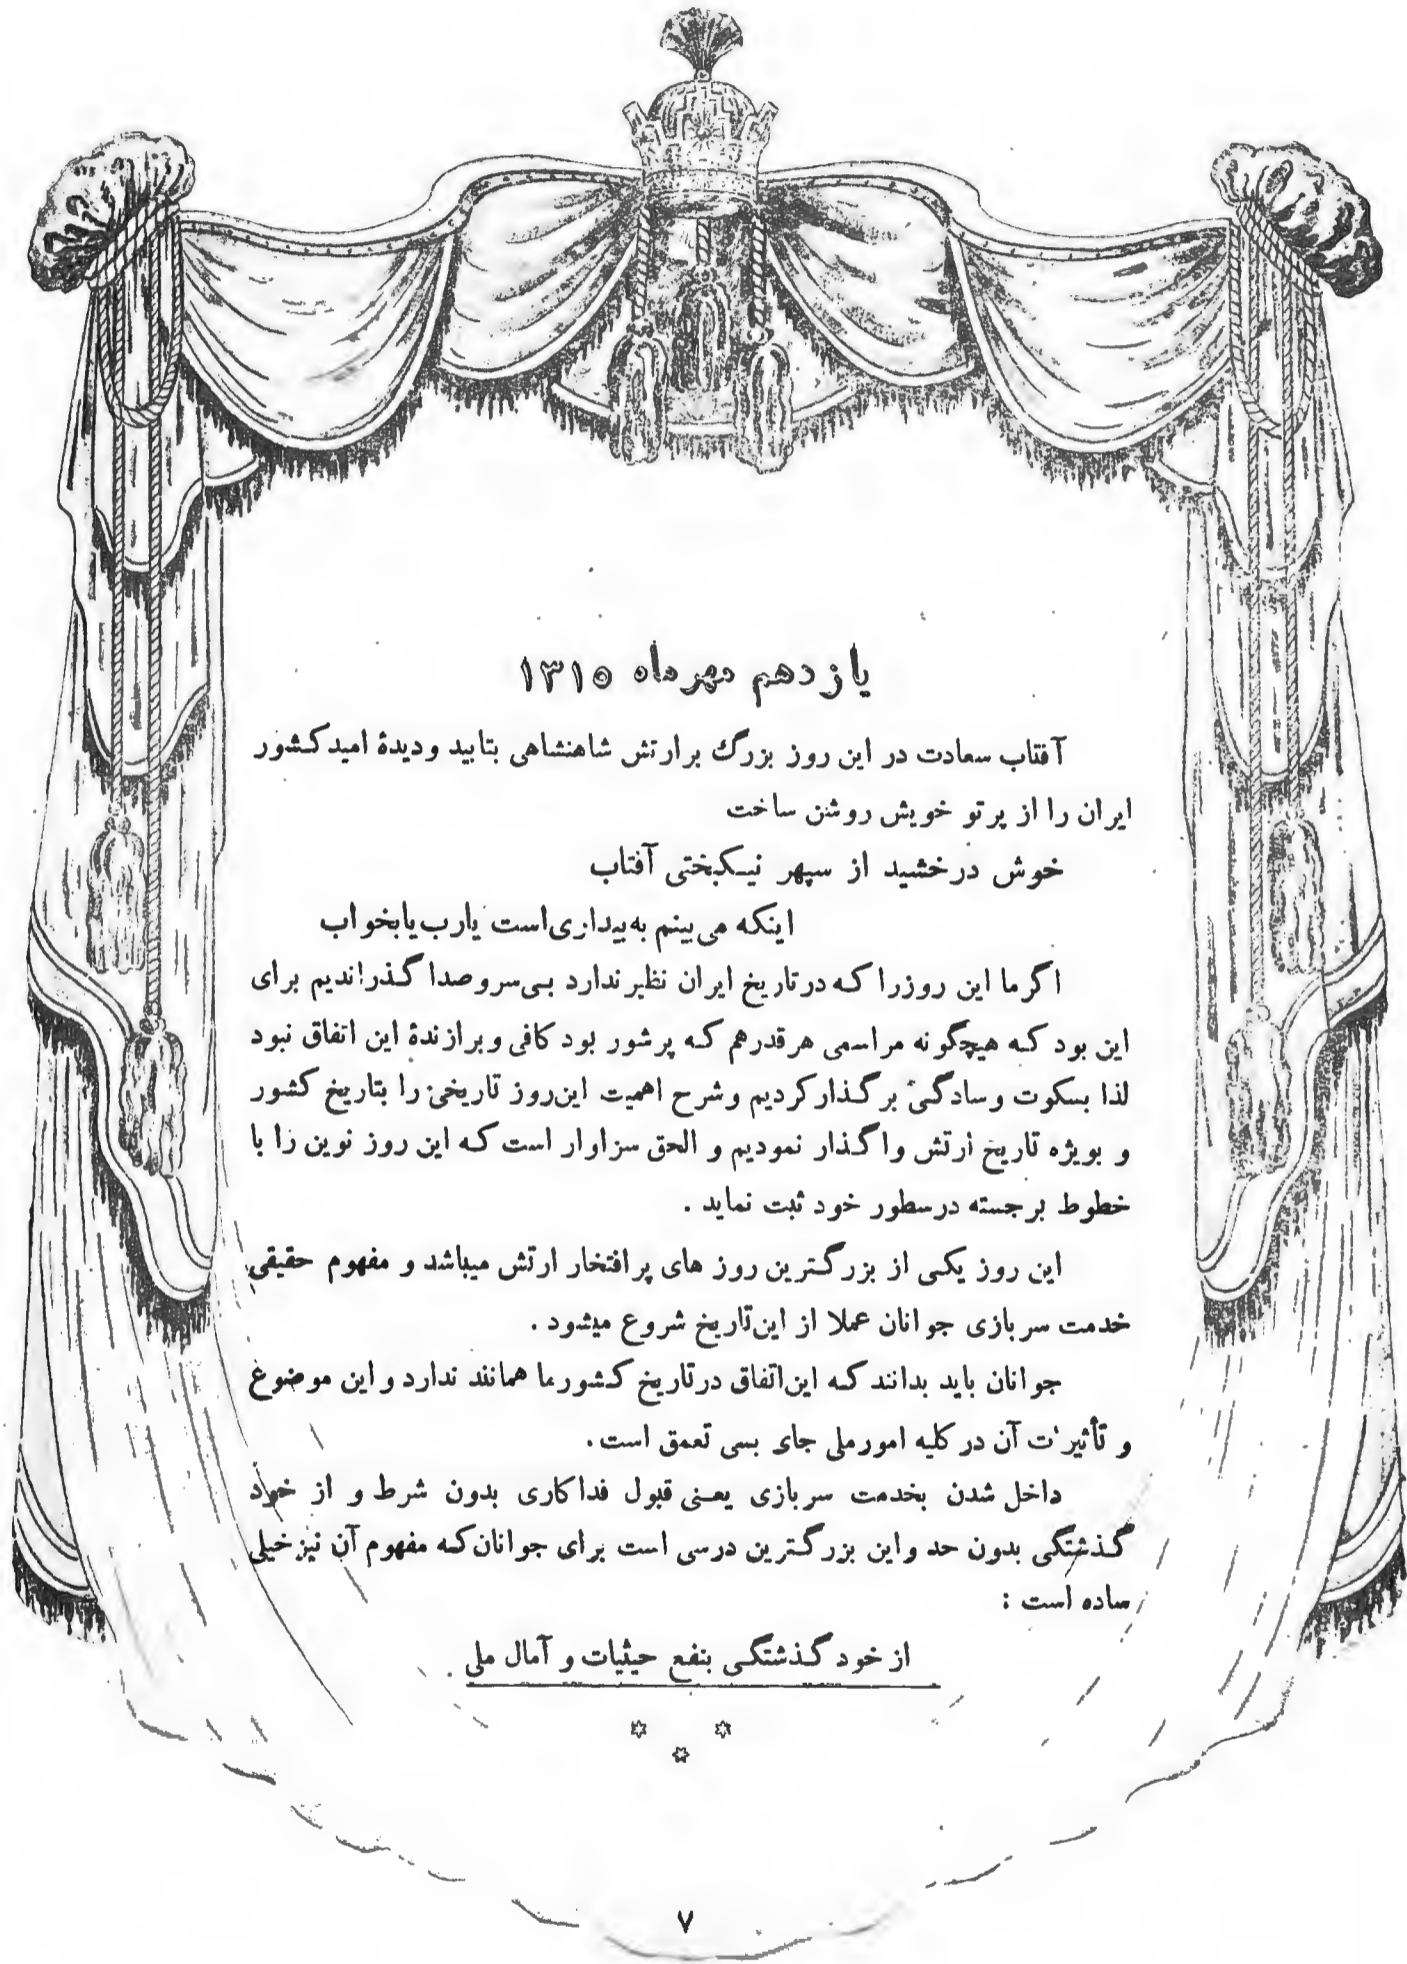 یازدهم مهرماه ۱۳۱۵
آفتاب سعادت در این روز بزرگ برارتش شاهنشاهی بتابید ودیدهٔ امیدکشور
ایران را از پرتو خویش روشن ساخت
خوش درخشید از سپهر نیکبختی آفتاب
اینکه می‌بینم به‌بیداری‌است یارب‌یابخواب
اگرما این روزرا که درتاریخ ایران نظیر ندارد بی‌سروصدا گذراندیم برای
این بود که هیچگونه مراسمی هرقدرهم که پرشور بود کافی وبرازندهٔ این اتفاق نبود
لذا بسکوت وسادگی برگذارکردیم وشرح اهمیت این‌روز تاریخی را بتاریخ کشور
و بویژه تاریخ ارتش واگذار نمودیم و الحق سزاوار است که این روز نوین را با
خطوط برجسته درسطور خود ثبت نماید .
این روز یکی از بزرگترین روز های پرافتخار ارتش میباشد و مفهوم حقیقی
خدمت سربازی جوانان عملا از این‌تاریخ شروع میشود .
جوانان باید بدانند که این‌اتفاق درتاریخ کشورما همانند ندارد واین موضوع
و تأثیرات آن درکلیه امورملی جای بسی تعمق است .
داخل شدن بخدمت سربازی یعنی قبول فداکاری بدون شرط و از خود
گذشتگی بدون حد واین بزرگترین درسی است برای جوانان‌که مفهوم آن نیز خیلی
ساده است :
از خود گذشتگی بنفع حیثیات و آمال ملی .
۷